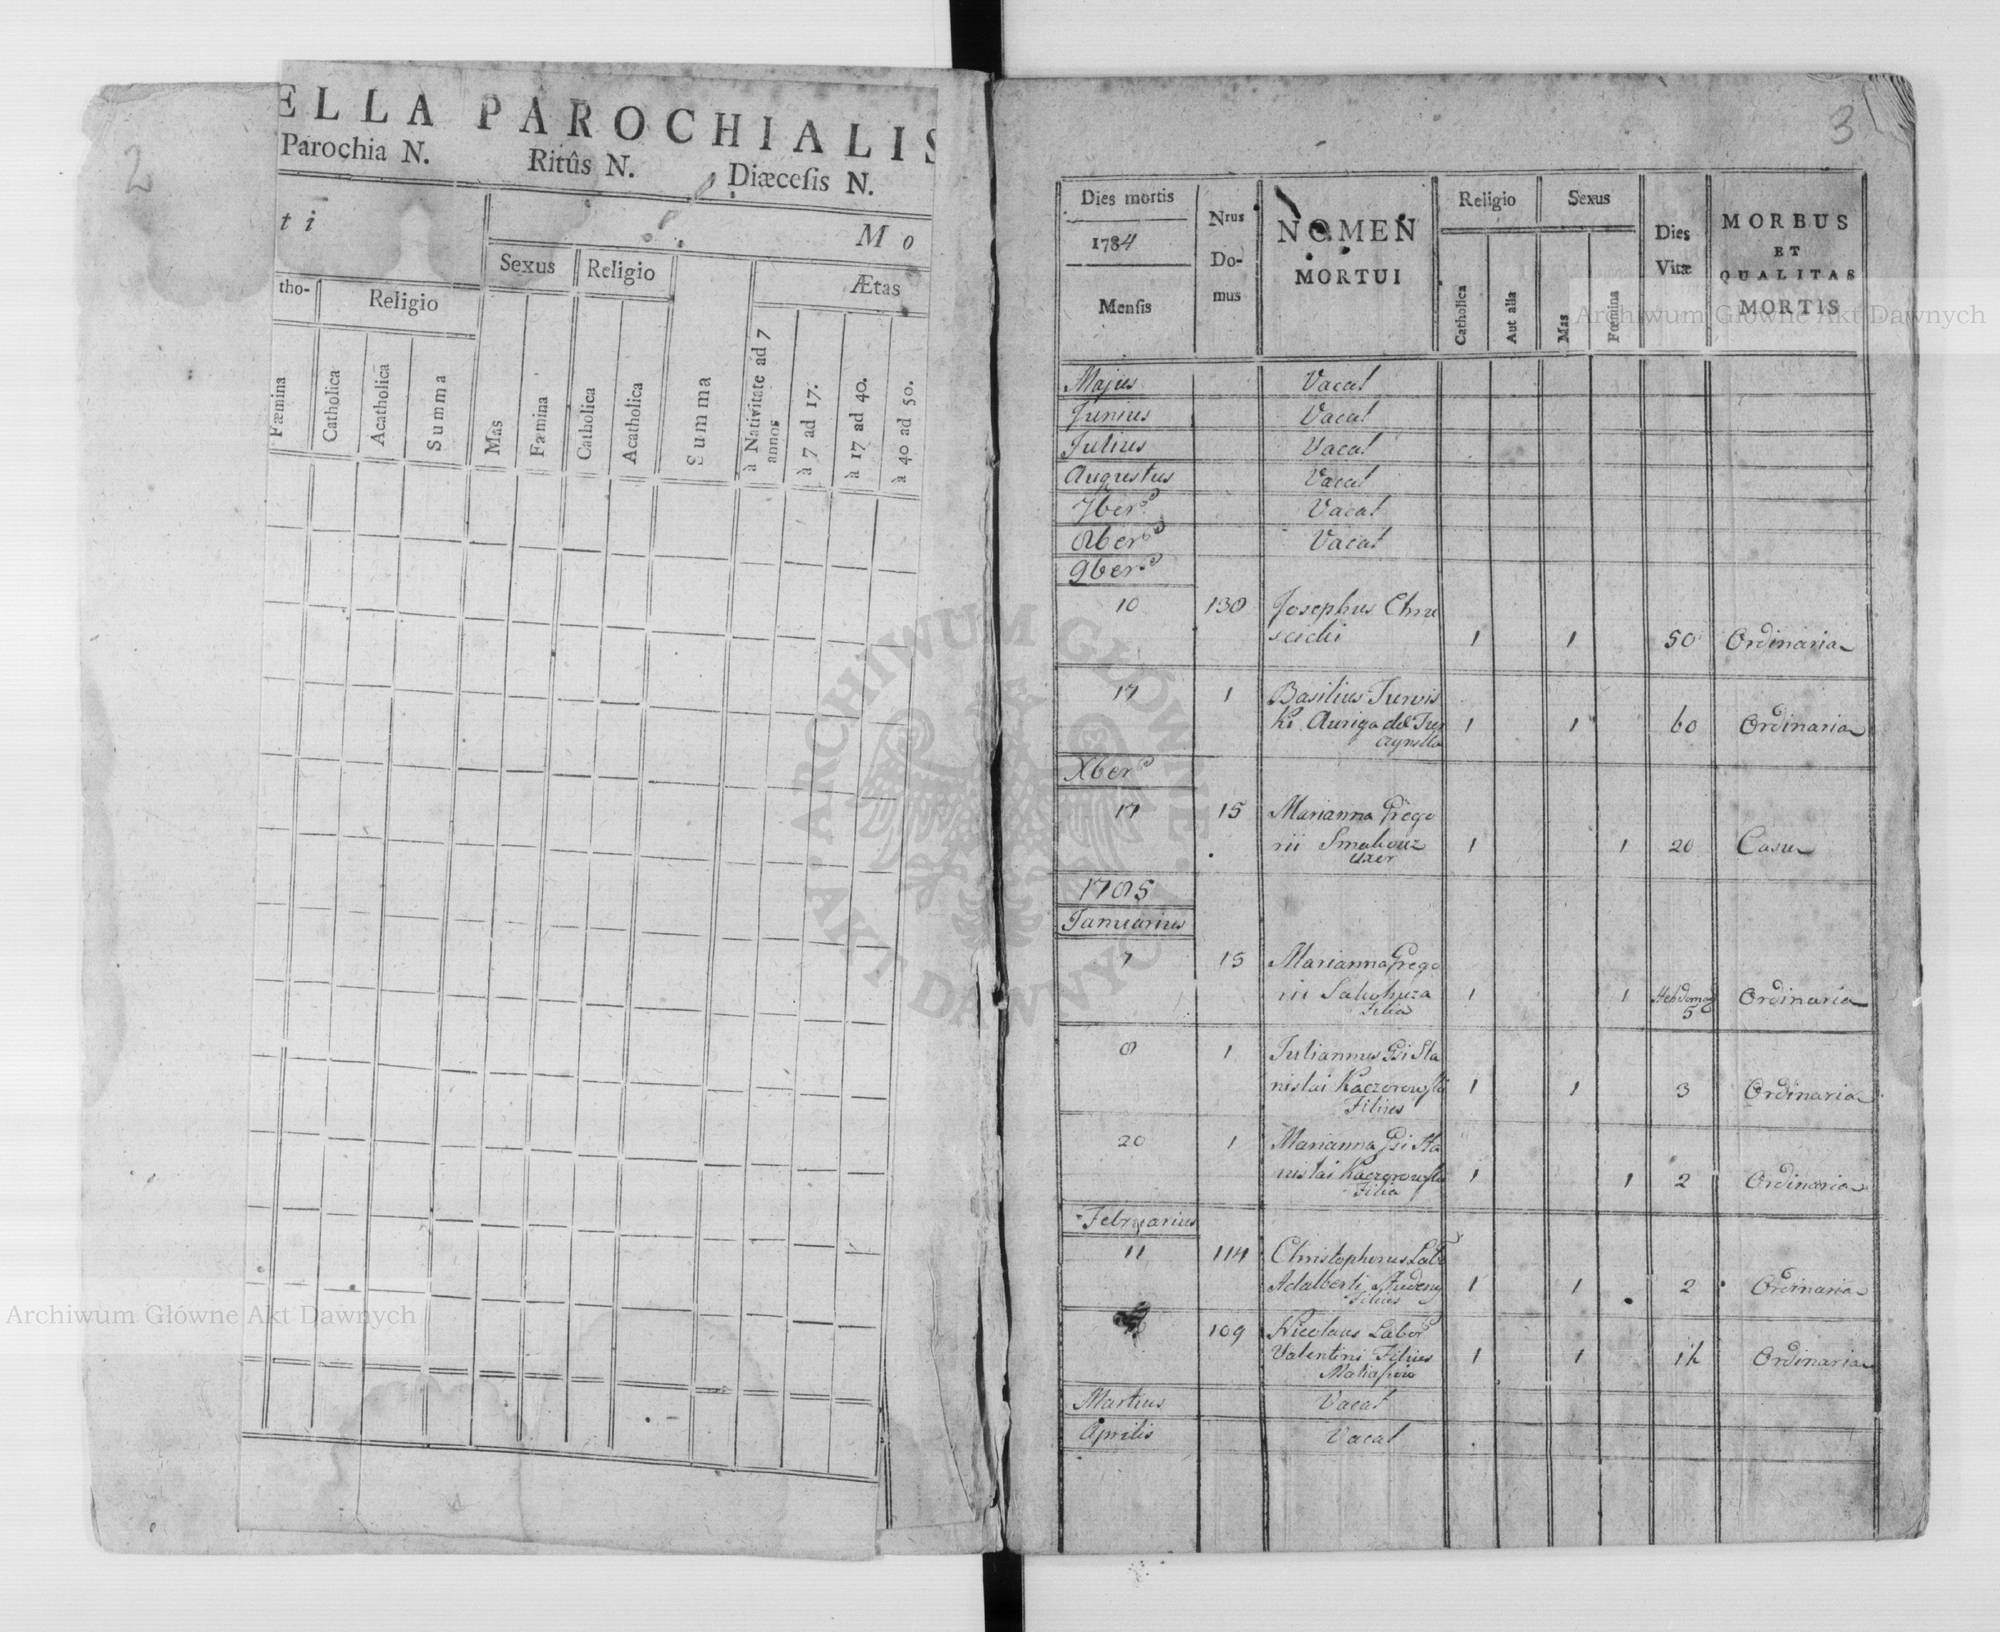 2
ELLA PAROCHIALIS
Parochia N. Ritûs N. Diæcesis N.
ti Mo
Sexus Religio Ætas
tho- Religio
Fæmina Catholica Acatholica Summa Mas Fæmina Catholica Acatholica Summa à Nativitate ad 7 annos à 7 ad 17. à 17 ad 40. à 40 ad 50.
3
Dies mortis 1784 Mensis
Nrus Domus
NOMEN MORTUI
Religio Catholica Aut alia
Sexus Mas Fœmina
Dies Vitæ
MORBUS ET QUALITAS MORTIS
Majus Vacat
Junius Vacat
Julius Vacat
Augustus Vacat
7bers Vacat
8bers Vacat
9bers
10 130 Josephus
1 1 50 Ordinaria
17 1 Basilius
ki Auriga 1 1 60 Ordinaria
Xbers
17 15 Marianna Grego
rii 1 1 20 Casu
uxor
1785
Januarius
7 15 Marianna Grego
rii 1 1 Hebdomad Ordinaria
Filia 5
8 1 Julianus Gsi Sta
nislai Kaczorowski 1 1 3 Ordinaria
Filius
20 1 Marianna Gsi Sta
nislai Kaczorowski 1 1 2 Ordinaria
Filia
Februarius
11 114 Christophorus Labo
Adalberti 1 1 2 Ordinaria
Filius
109 Nicolaus Labor
Valentini Filius 1 1 Ordinaria
Martius Vacat
Aprilis Vacat
Archiwum Główne Akt Dawnych
Archiwum Główne Akt Dawnych
ARCHIWUM GŁÓWNE · AKT DAWNYCH ·